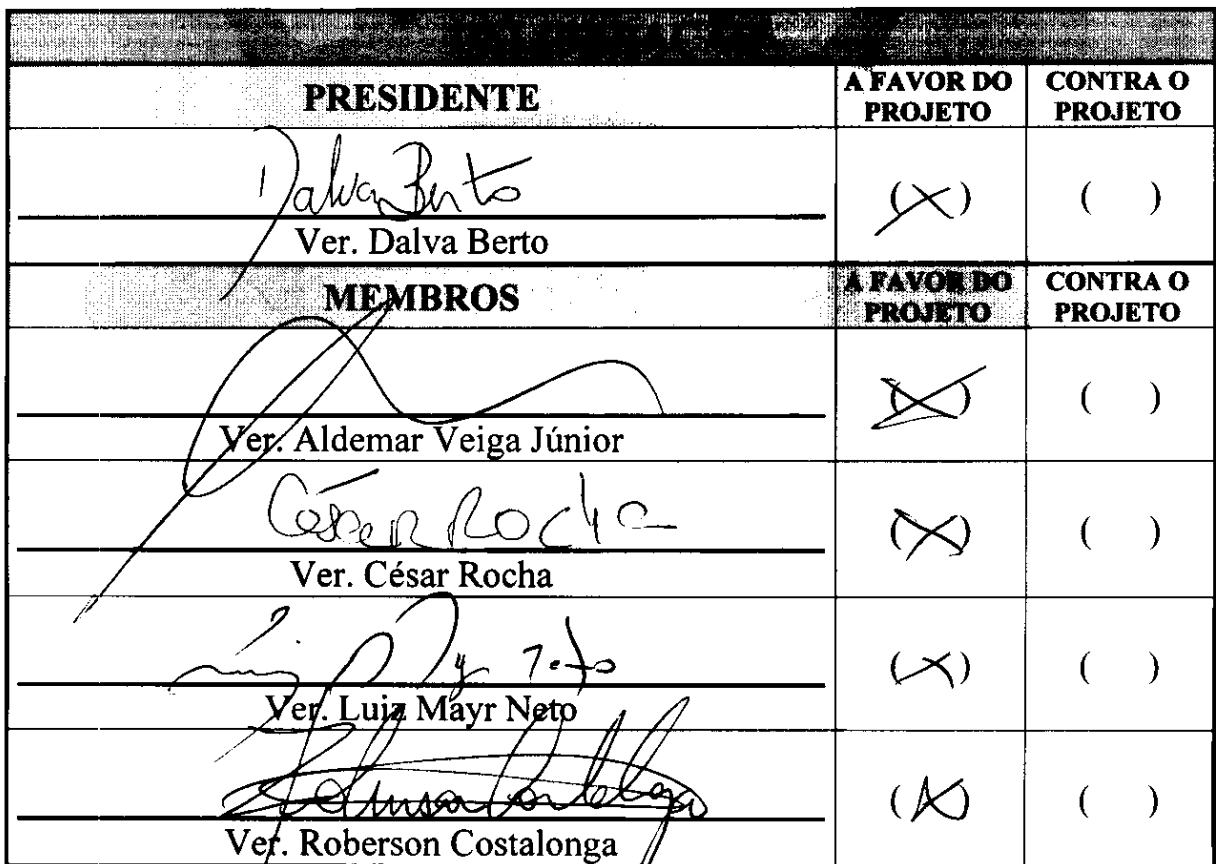 PRESIDENTE
A FAVOR DO PROJETO
CONTRA O PROJETO
Dalva Berto
(X)
( )
Ver. Dalva Berto
MEMBROS
A FAVOR DO PROJETO
CONTRA O PROJETO
(X)
( )
Ver. Aldemar Veiga Júnior
César Rocha
(X)
( )
Ver. César Rocha
(X)
( )
Ver. Luiz Mayr Neto
(X)
( )
Ver. Roberson Costalonga